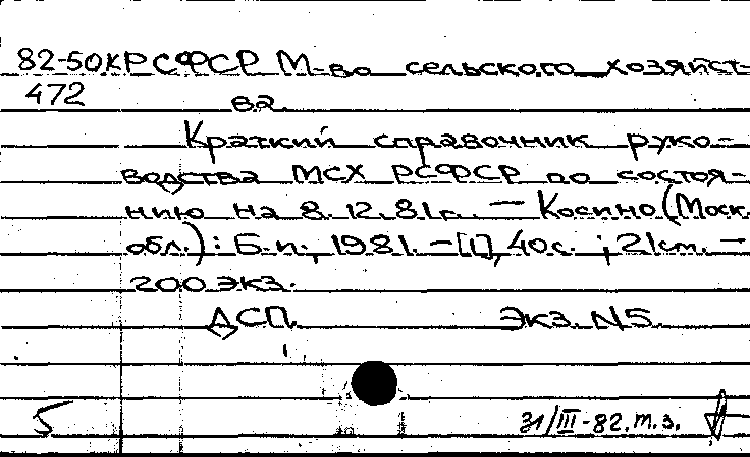 82-50КРСФСР М-во сельского хозяйст-
472 ва.
Краткий справочник руко-
водства МСХ РСФСР по состоя-
нию на 8.12.81г. — Косино (Моск.
обл.): Б.и., 1981. - [1], 40с. ; 21см. —
200 экз.
ДСП. Экз. N5.
5 31/III-82. т.з.